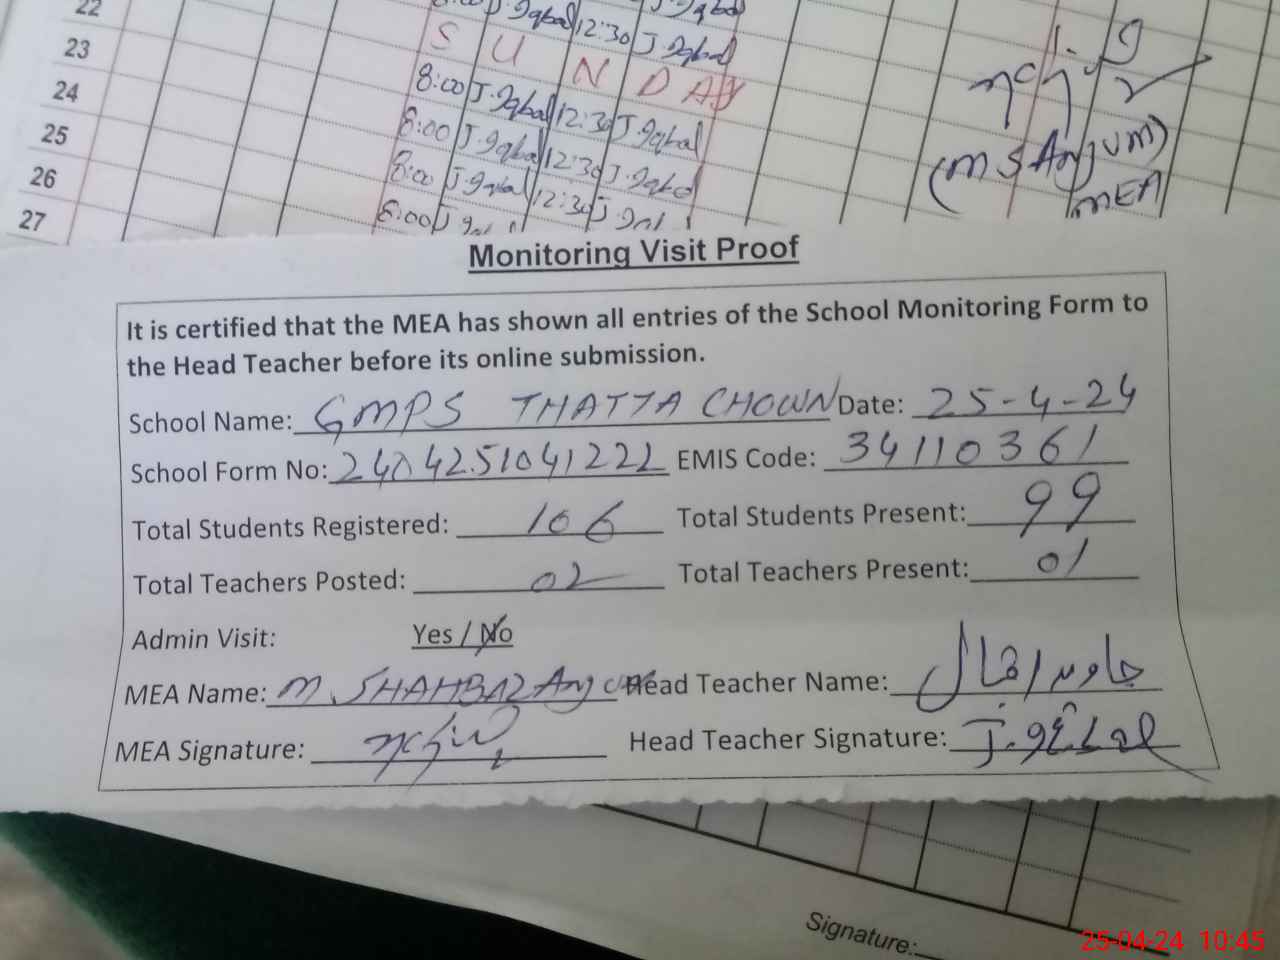 22 J.Iqbal 12:30 J.Iqbal
23 S U N D A Y
24 8:00 J.Iqbal 12:30 J.Iqbal
25 8:00 J.Iqbal 12:30 J.Iqbal
26 8:00 J.Iqbal 12:30
27 8:00
(M S Anjum)
MEA
Monitoring Visit Proof
It is certified that the MEA has shown all entries of the School Monitoring Form to
the Head Teacher before its online submission.
School Name: GMPS THATTA CHOWN Date: 25-4-24
School Form No: 2404251041222 EMIS Code: 34110361
Total Students Registered: 106 Total Students Present: 99
Total Teachers Posted: 02 Total Teachers Present: 01
Admin Visit: Yes / No
MEA Name: M. SHAHBAZ Anjum Head Teacher Name: جاوید اقبال
MEA Signature: Head Teacher Signature: J.Iqbal
Signature:
25-04-24 10:45